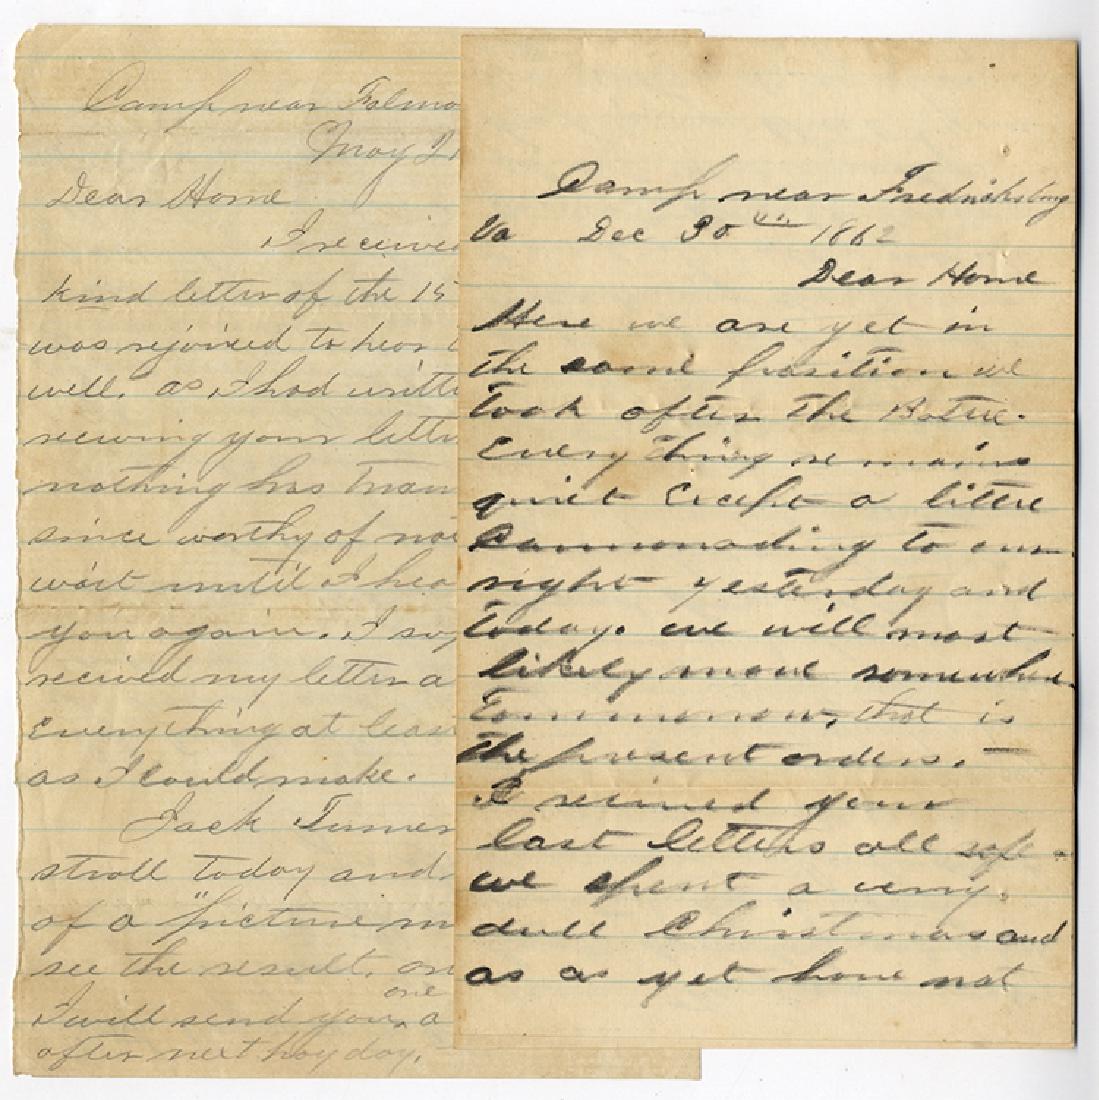 Camp near Falmo
May 21
Dear Home
I received
kind letter of the 15
was rejoiced to hear
well. as I had writt
recieving your lett
nothing has tran
since worthy of no
wait until I hea
you again. I
recieved my letter a
everything at leas
as I could make.
Jack Turner
stroll today and
of a "picture m
see the result. on
one
I will send you a
after next pay day.
Camp near Fredricksburg
Va Dec 30th 1862
Dear Home
Here we are yet in
the same position we
took after the Battle.
Every thing remains
quiet Except a little
Cannonading to our
right yesterday and
today. we will most
likely move somewhere
Tommorrow, that is
the present orders. —
I recieved your
last letters all safe -
we spent a very
dull Christmas and
as as yet have not